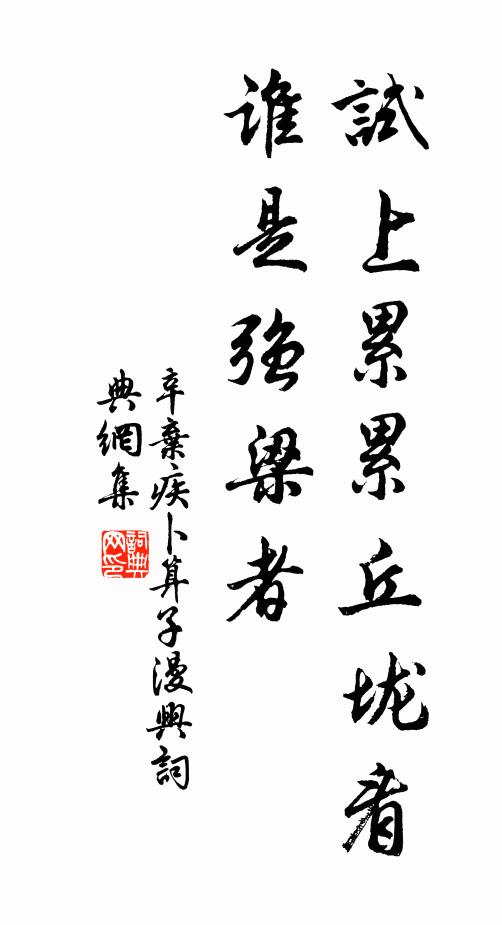 試上累累丘垅看
谁是强梁者
辛棄疾卜算子漫興詞
典網集
詞典
网印